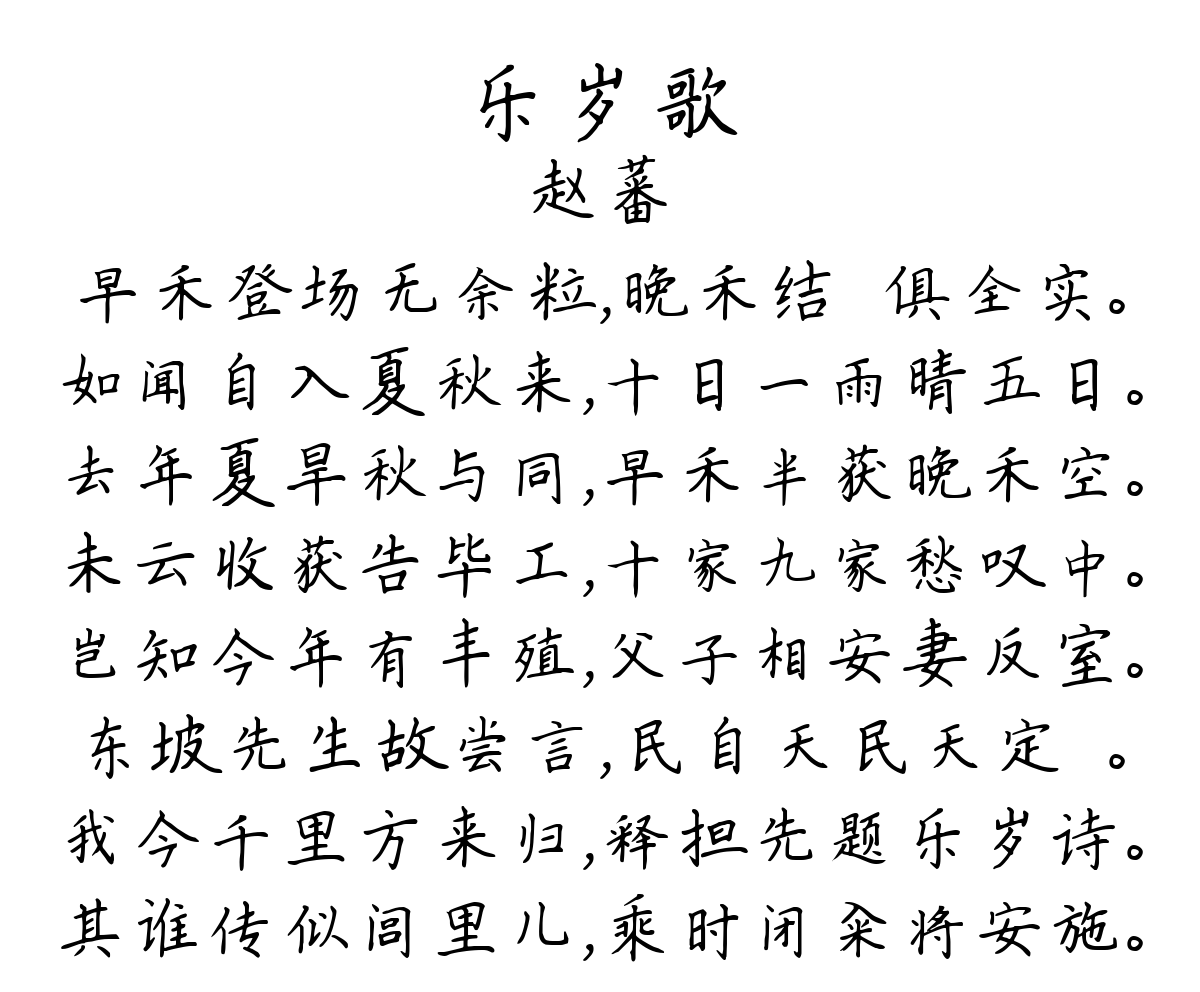 乐岁歌
赵蕃
早禾登场无余粒,晚禾结 俱全实。
如闻自入夏秋来,十日一雨晴五日。
去年夏旱秋与同,早禾半获晚禾空。
未云收获告毕工,十家九家愁叹中。
岂知今年有丰殖,父子相安妻反室。
东坡先生故尝言,民自天民天定 。
我今千里方来归,释担先题乐岁诗。
其谁传似闾里儿,乘时闭籴将安施。